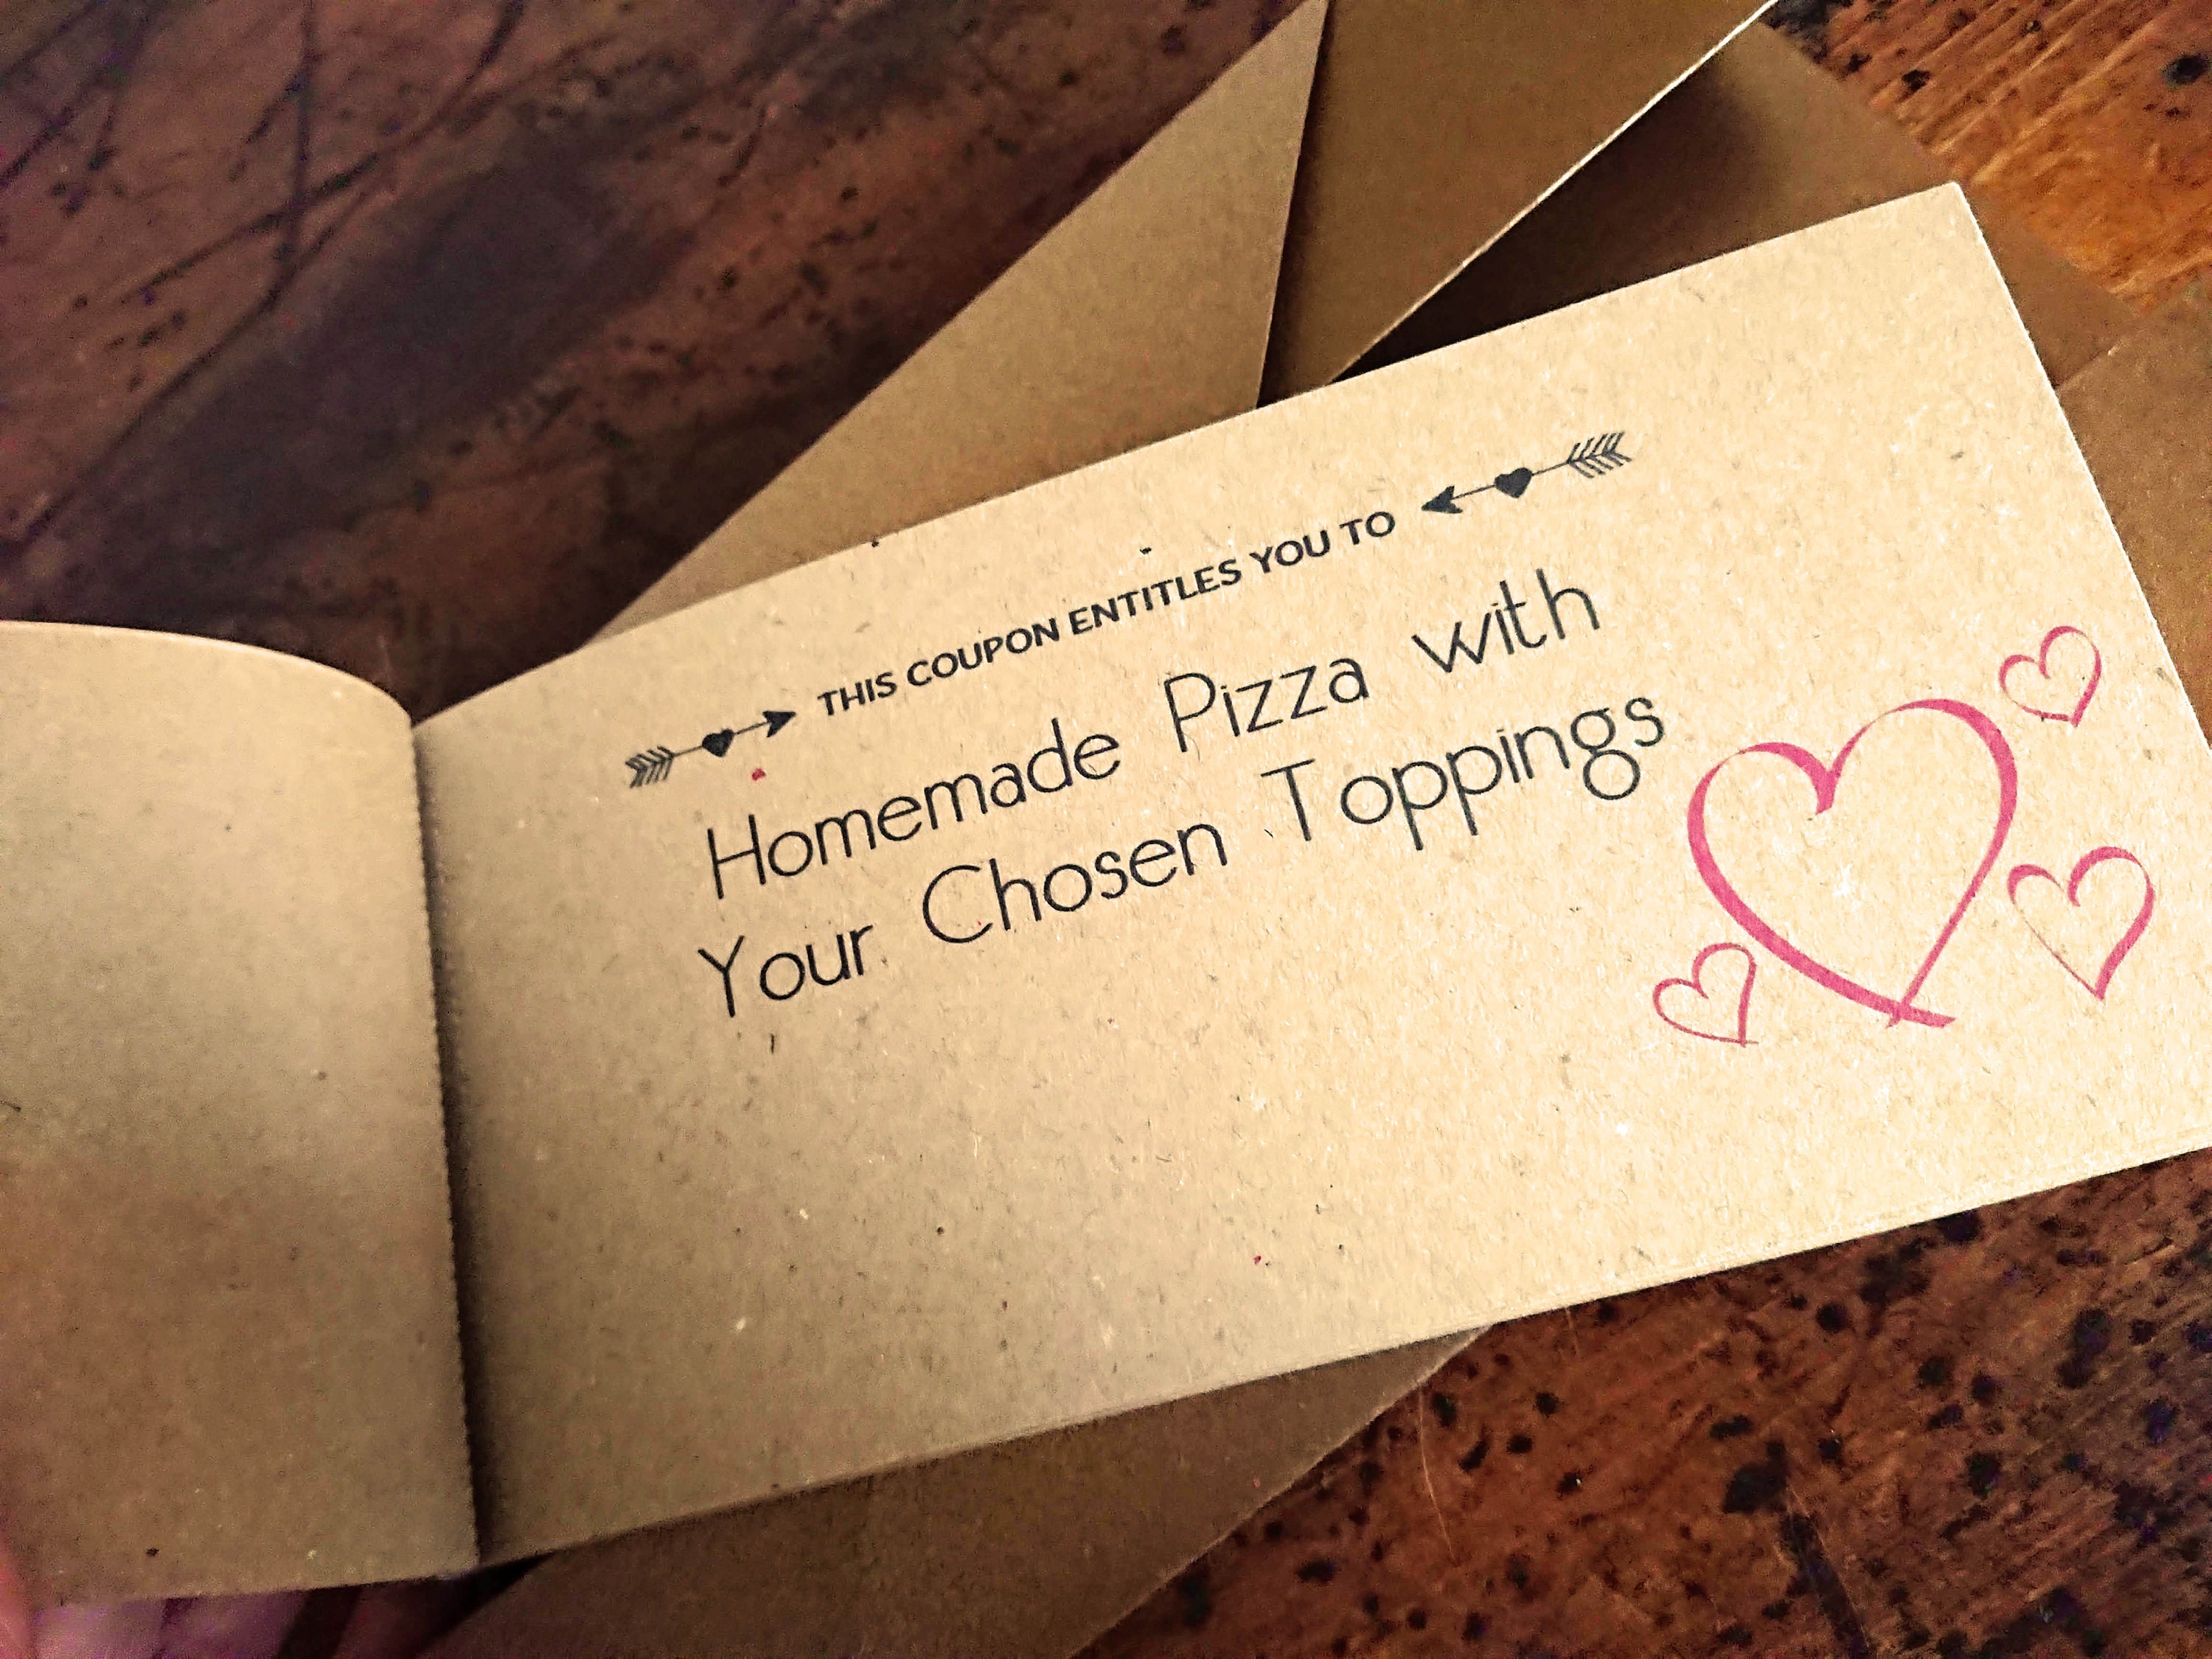 THIS COUPON ENTITLES YOU TO
Homemade Pizza with
Your Chosen Toppings